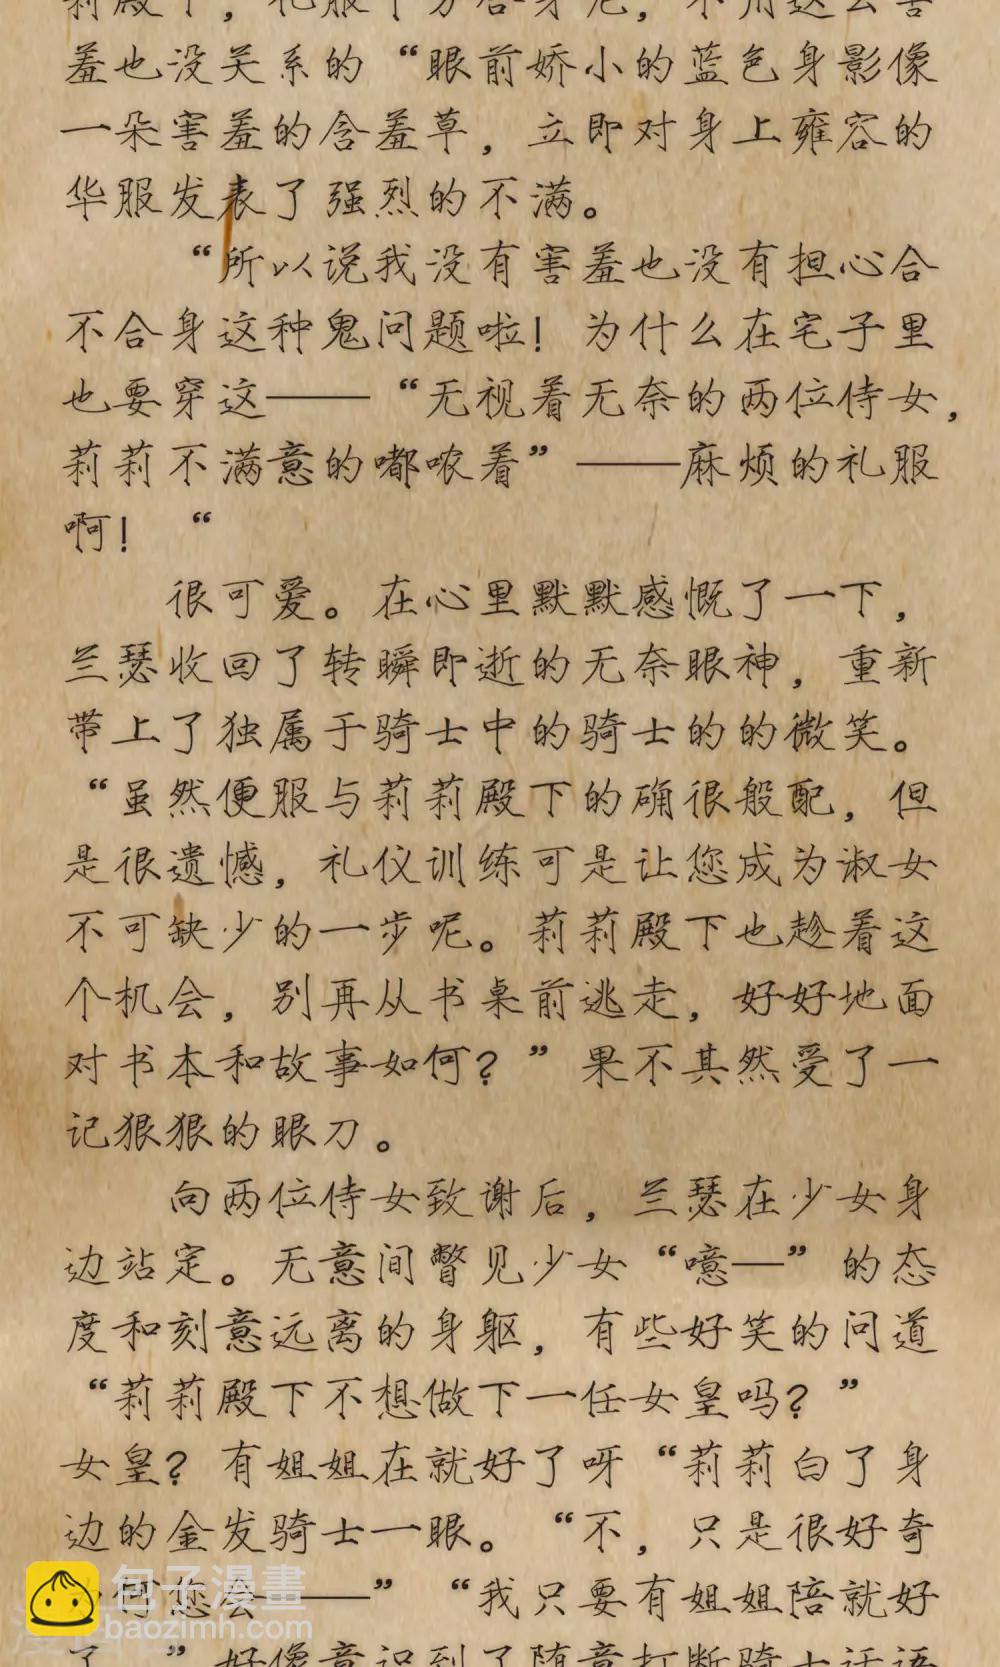 莉殿下，礼服十分合身呢，不用这么害
羞也没关系的“眼前娇小的蓝色身影像
一朵害羞的含羞草，立即对身上雍容的
华服发表了强烈的不满。
“所以说我没有害羞也没有担心合
不合身这种鬼问题啦！为什么在宅子里
也要穿这——“无视着无奈的两位侍女，
莉莉不满意的嘟哝着”——麻烦的礼服
啊！“
很可爱。在心里默默感慨了一下，
兰瑟收回了转瞬即逝的无奈眼神，重新
带上了独属于骑士中的骑士的的微笑。
“虽然便服与莉莉殿下的确很般配，但
是很遗憾，礼仪训练可是让您成为淑女
不可缺少的一步呢。莉莉殿下也趁着这
个机会，别再从书桌前逃走，好好地面
对书本和故事如何？”果不其然受了一
记狠狠的眼刀。
向两位侍女致谢后，兰瑟在少女身
边站定。无意间瞥见少女“噫—”的态
度和刻意远离的身躯，有些好笑的问道
“莉莉殿下不想做下一任女皇吗？”
女皇？有姐姐在就好了呀“莉莉白了身
边的金发骑士一眼。“不，只是很好奇
何您会——”“我只要有姐姐陪就好
了。”好像意识到了随意打断骑士话语
包子漫畫
baozimh.com